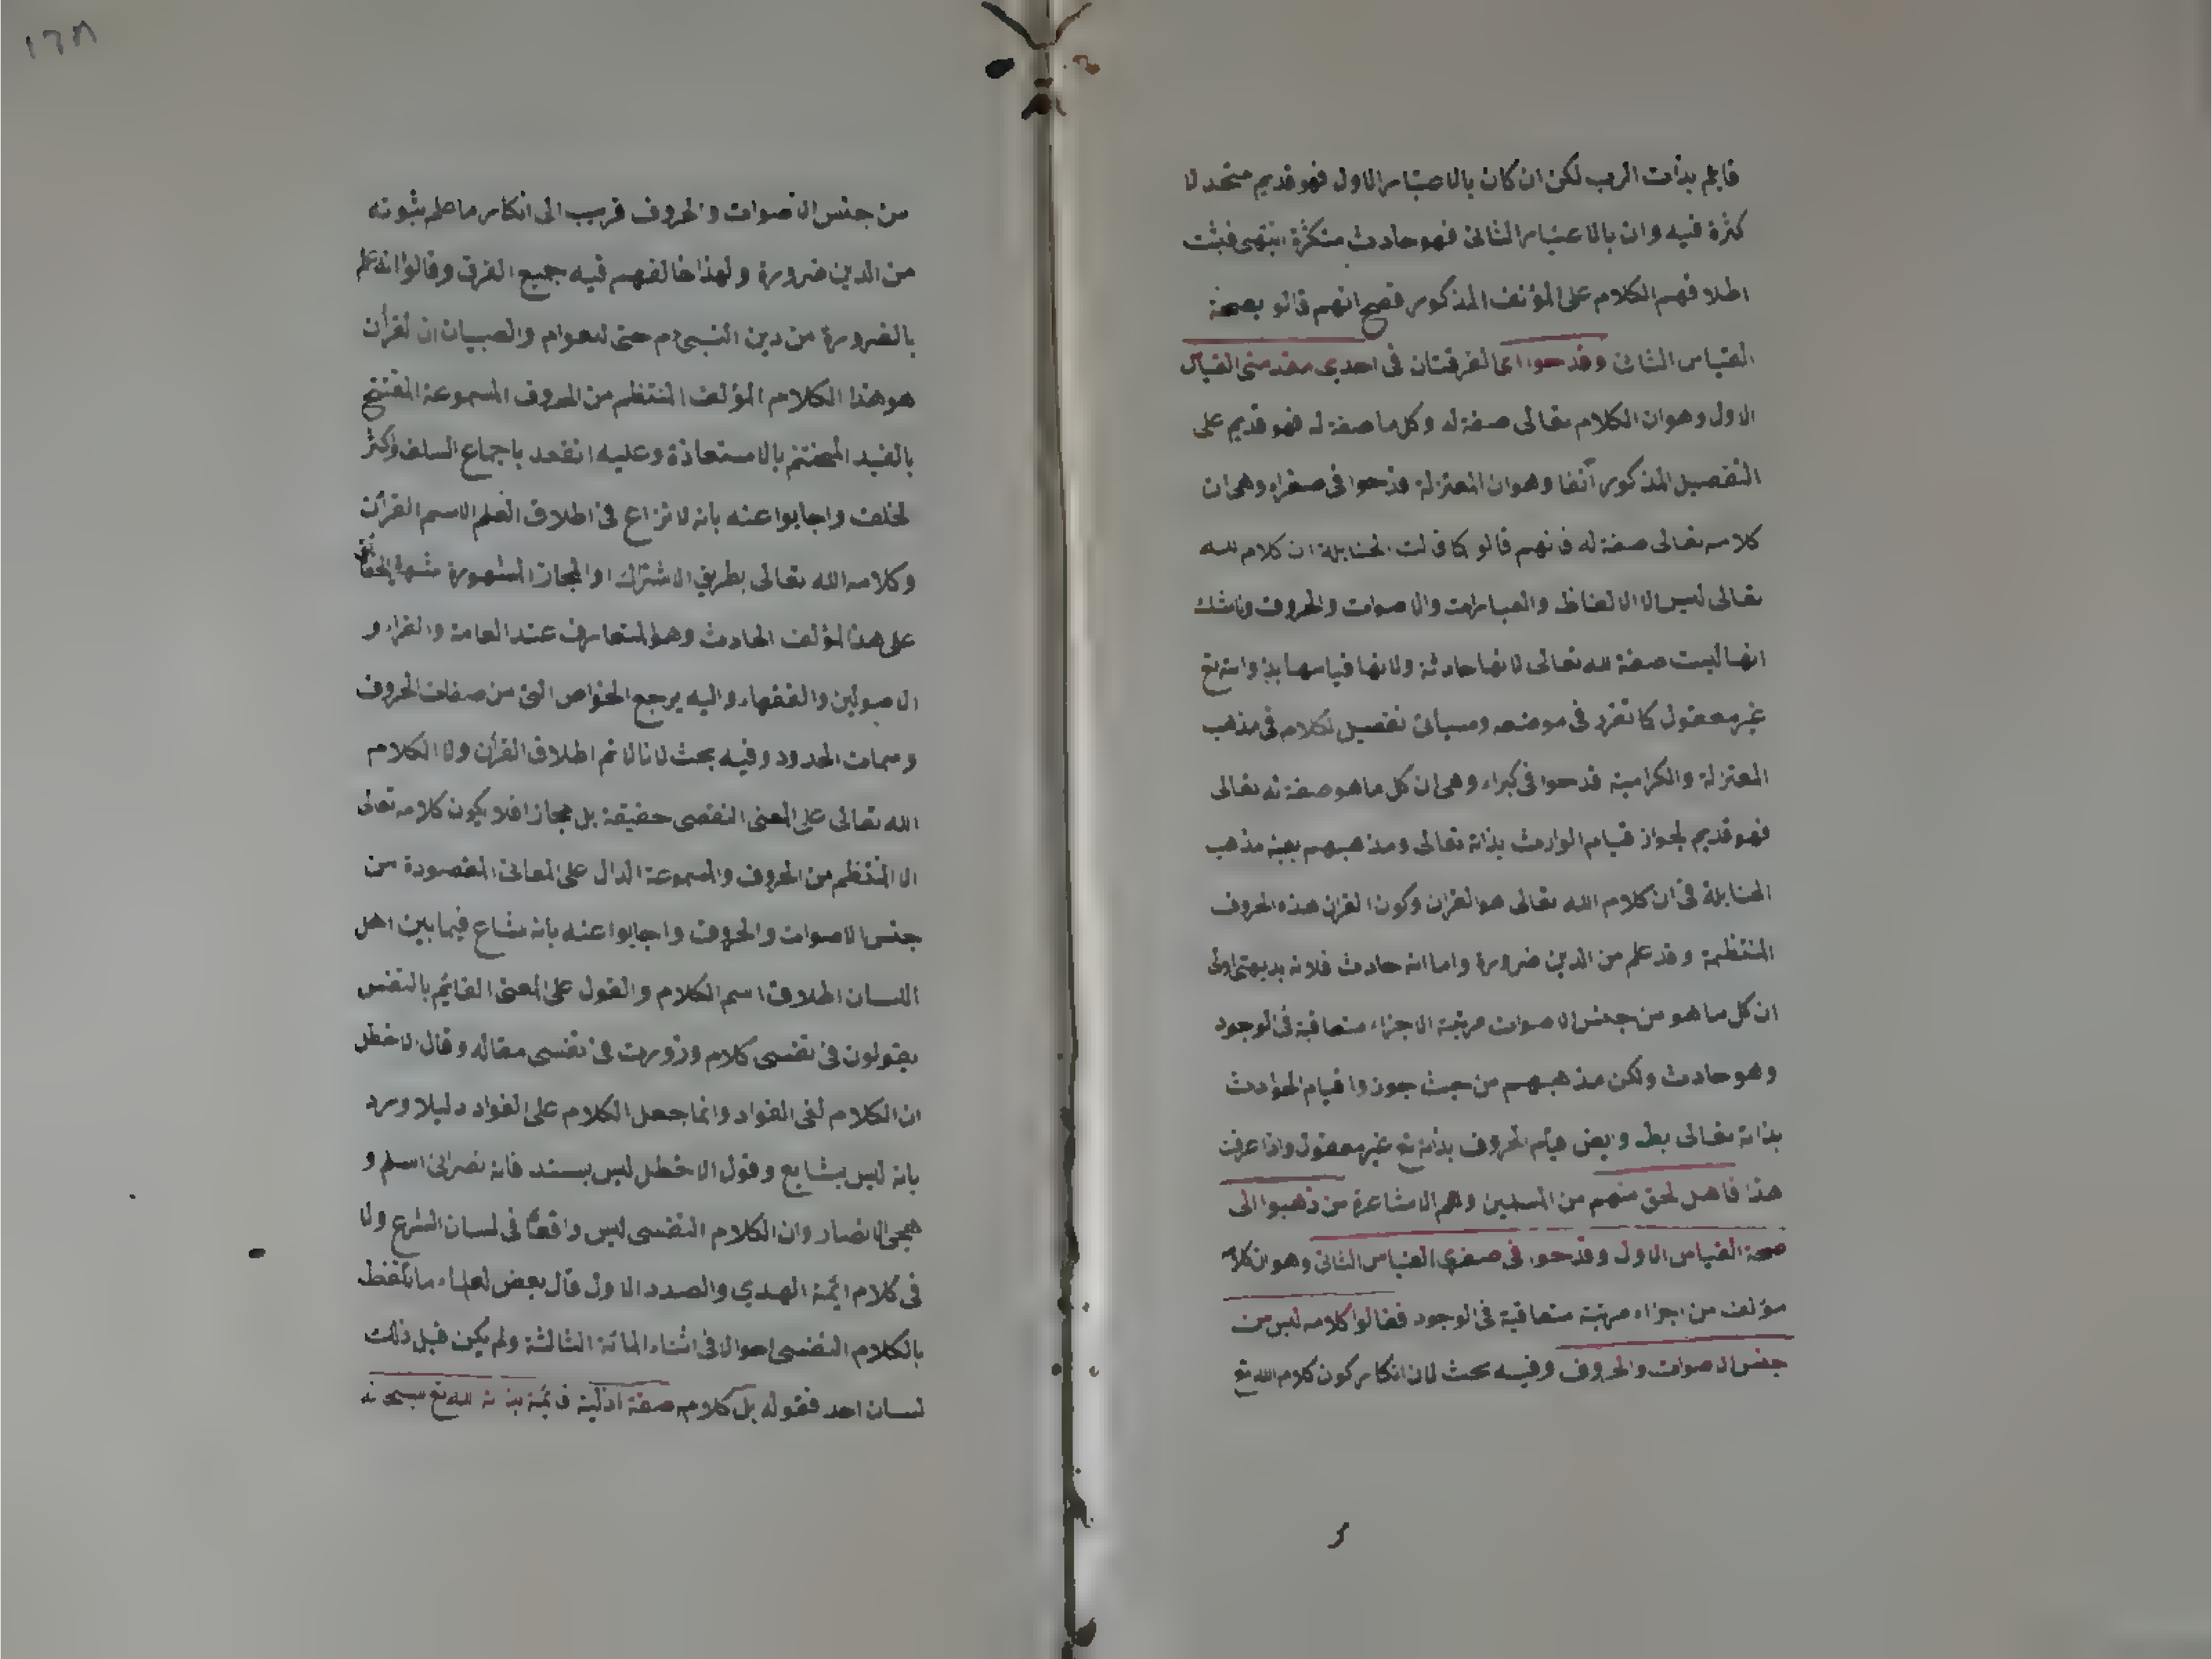 قائم بذات الرب لكن ان كان بالاعتبار الاول فهو قديم متحد لا
كثرة فيه وان بالاعتبار الثانى فهو حادث متكثرة انتهى فثبت
اطلاقهم الكلام على المؤلف المذكور فصح انهم قالو بصحة
القياس الثانى وقدحوا اى الفرقتان فى احدى مقدمتى القياس
الاول وهو ان الكلام تعالى صفة له وكل ما صفة له فهو قديم على
التفصيل المذكور آنفا وهو ان المعتزلة قدحوا فى صغراه وهى ان
كلامه تعالى صفة له فانهم قالو كما قالت الحنابلة ان كلام الله
تعالى ليس الا الالفاظ والعبارات والاصوات والحروف ولا شك
انها ليست صفة لله تعالى لانها حادثة ولانها قيامها بذواته تع
غير معقول كما تقرر فى موضعه وسيأتى تفصيل لكلام فى مذهب
المعتزلة والكرامية قدحوا فى كبراه وهى ان كل ما هو صفة له تعالى
فهو قديم لجواز قيام الوادث بذاته تعالى ومذهبهم بعينه مذهب
الحنابلة فى ان كلام الله تعالى هو القران وكون القران هذه الحروف
المنتظمة وقد علم من الدين ضرورة واما انه حادث فلانه بديهتى اولى
ان كل ما هو من جنس الاصوات مرتبة الاجزاء متعاقبة فى الوجود
وهو حادث ولكن مذهبهم من حيث جوزوا قيام الحوادث
بذاته تعالى بط وايض قيام الحروف بذاته تع غير معقول واذا عرفت
هذا فاهل لحق منهم من المسلمين وهم الاشاعرة من ذهبوا الى
صحة القياس الاول وقدحوا فى صغرى القياس الثانى وهو ان كلامه
مؤلف من اجزاء مرتبة متعاقبة فى الوجود فقالوا كلامه ليس من
جنس الاصوات والحروف وفيه بحث لان انكار كون كلام الله تع
١٦٨
من جنس الاصوات والحروف قريب الى انكار ما علم بثبوته
من الدين ضرورة ولهذا خالفهم فيه جميع الفرق وقالوا انه علم
بالضرورة من دين النبى م حتى للعوام والصبيان ان لقرأن
هو هذا الكلام المؤلف المنتظم من الحروف المسموعة المفتتح
بالمختتم بالاستعاذة وعليه انعقد باجماع السلف واكثر
لخلف واجابوا عنه بانه لا نزاع فى اطلاق العلم الاسم القرآن
وكلامه الله تعالى بطريق الاشتراك او المجاز المشهورة
على هذا المؤلف الحادث وهو المتعارف عند العامة والقراء و
الاصولين والفقهاء واليه يرجع الخواص التى من صفات الحروف
وسمات الحدود وفيه بحث لانا لا نم اطلاق القرأن ولا الكلام
الله تعالى على المعنى النفسى حقيقة بل مجازا فلا يكون كلامه تعالى
الا المنتظم من الحروف والمسموعة الدال على المعانى المقصودة من
جنس الاصوات والحروف واجابوا عنه بانه شاع فيما بين اهل
اللسان اطلاق اسم الكلام والقول على المعنى القائم بالنفس
يقولون فى نفسى كلام وزورت فى نفسى مقاله وقال الاخطل
ان الكلام لفى الفواد وانما جعل الكلام على الفواد دليلا ورد
بانه ليس بشايع وقول الاخطل ليس بسند فانه نصرانى اسلم و
هجى الانصار وان الكلام النفسى ليس واقعاً فى لسان الشرع ولا
فى كلام ائمة الهدي والصدد الاول قال بعض لعلماء ما تلفظ
بالكلام النفسى احوالا فى اثناء المائة الثالثة ولم يكن قبل ذلك
لسان احد فقوله بل كلامه صفة ازلية قائمة بذاته لله تع سبحانه